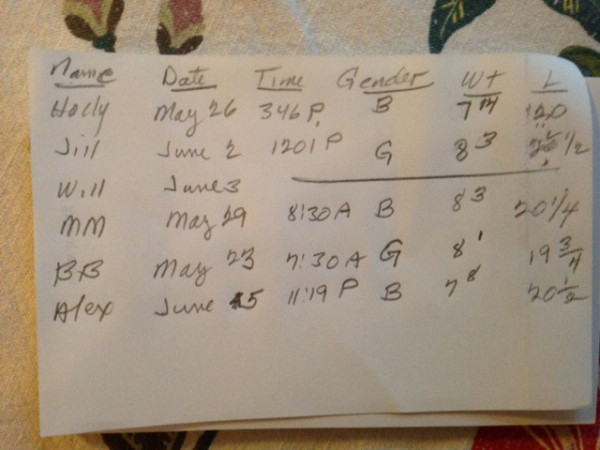 Name Date Time Gender Wt L
Holly May 26 346 P. B 7 14 20
Jill June 2 1201 P G 8 3 1/2
Will June 3
MM May 29 8:30 A B 8 3 20 1/4
BB May 23 7:30 A G 8 1 19 3/4
Alex June 5 11:19 P B 7 8 20 1/2